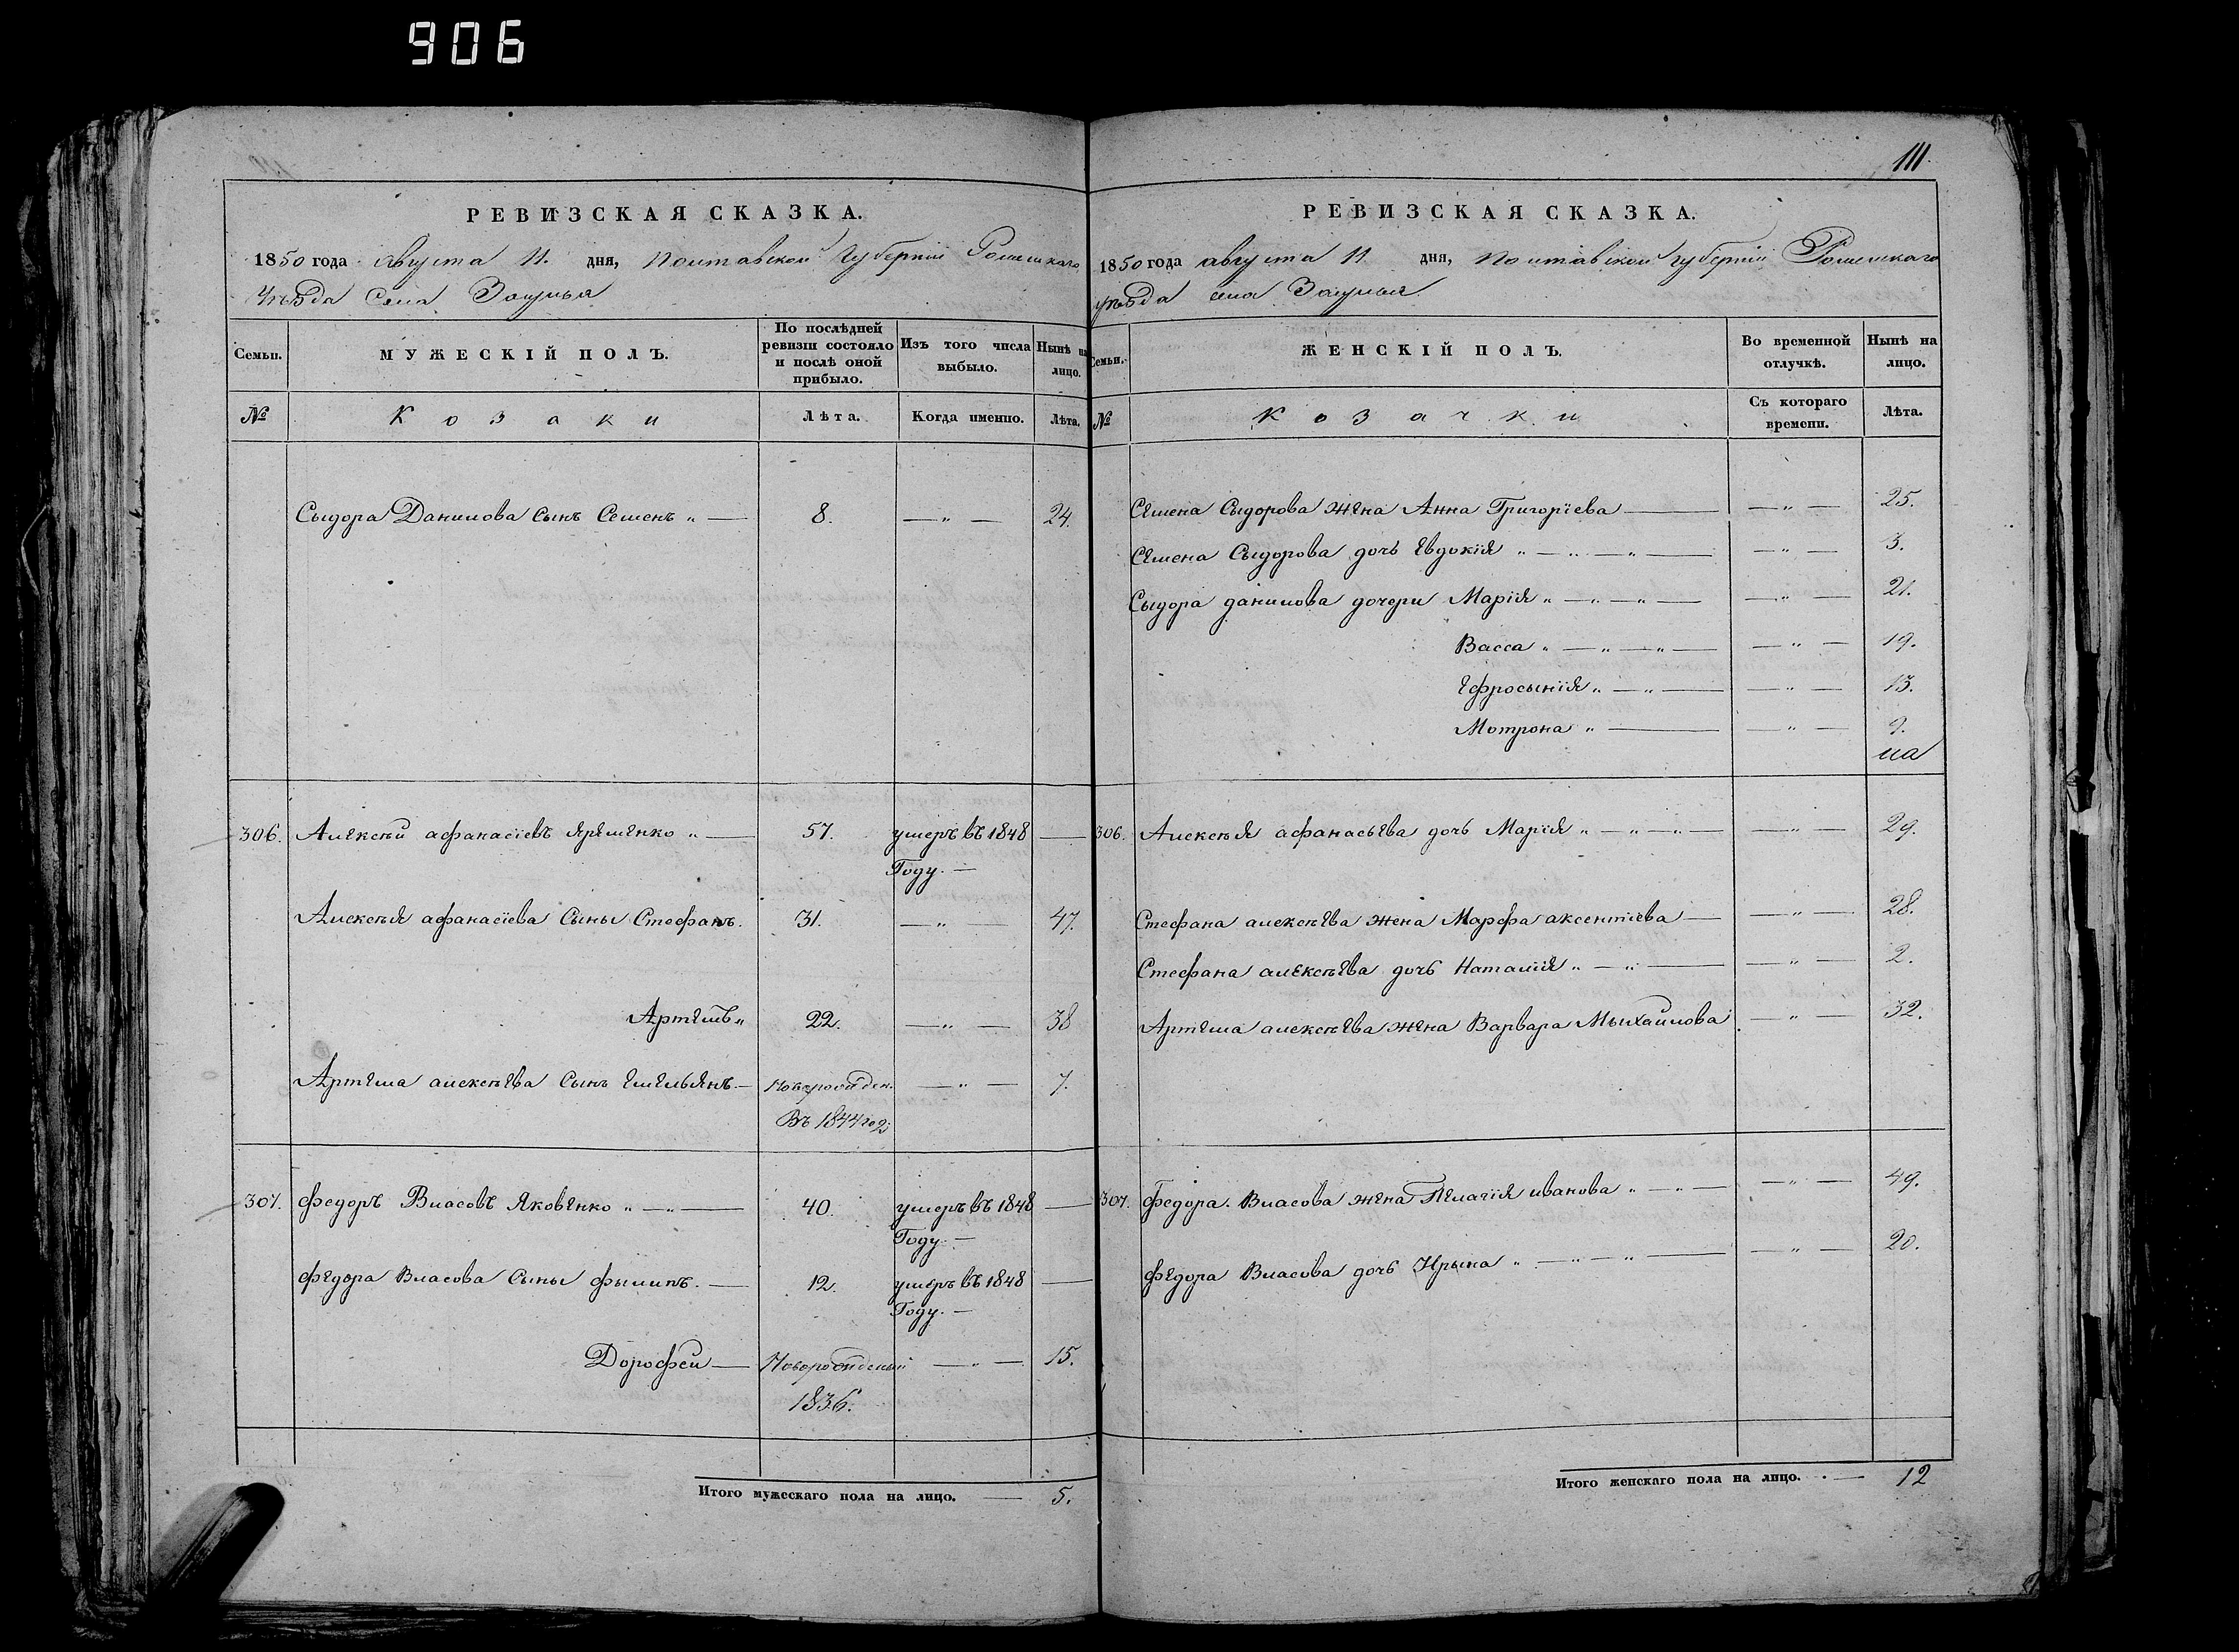 906
111
РЕВИЗСКАЯ СКАЗКА.
1850 года августа 11. дня, Полтавской Губернии Роменскаго
Уезда Села Засулья
Семьи. МУЖЕСКІЙ ПОЛЪ. По послѣдней ревизіи состояло и послѣ оной прибыло. Изъ того числа выбыло. Нынѣ на лицо.
№ Козаки Лѣта. Когда именно. Лѣта.
Сыдора Данилова сынъ Семенъ „ — 8. — „ — 24.
306. Алексѣй афанасіевъ Яременко „ — 57. умеръ въ 1848 —
Году. —
Алексѣя афанасіева Сыны Стефанъ. 31. — „ — 47.
Артемъ „ 22. — „ — 38
Артема алексѣева Сынъ Емельянъ — Новорожден. — „ — 7.
Въ 1844 го
307. Федоръ Власовъ Яковенко „ — „ — 40. умеръ въ 1848 —
Году. —
Федора Власова Сыны Филипъ. — 12. умеръ въ 1848 —
Году. —
Дорофей — Новорожденый — „ — 15.
1836.
Итого мужескаго пола на лицо. — 5.
РЕВИЗСКАЯ СКАЗКА.
1850 года августа 11 дня, Полтавской губерніи Роменскаго
уезда села Засулья
Семьи. ЖЕНСКІЙ ПОЛЪ. Во временной отлучкѣ. Нынѣ на лицо.
№ Козачки Съ котораго времени. Лѣта.
Семена Сыдорова жена Анна Григоріева — — „ — 25.
Семена Сыдорова дочь Евдокія „ — „ — „ — — „ — 3.
Сыдора данилова дочери Марія „ — „ — „ — — „ — 21.
Васса „ — „ — „ — — „ — 19.
Ефросынія „ — „ — — „ — 13.
Мотрона „ — — „ — 9.
306. Алексѣя афанасьева дочь Марія „ — „ — „ — — „ — 29.
Стефана алексѣева жена Марфа аксентіева — — „ — 28.
Стефана алексѣева дочь Наталія „ — „ — — „ — 2.
Артема алексѣева жена Варвара Мыхайлова. — „ — 32.
307. Федора Власова жена Пелагія иванова „ — „ — — „ — 49.
Федора Власова дочь Ирына „ — „ — „ — — „ — 20.
Итого женскаго пола на лицо. — 12